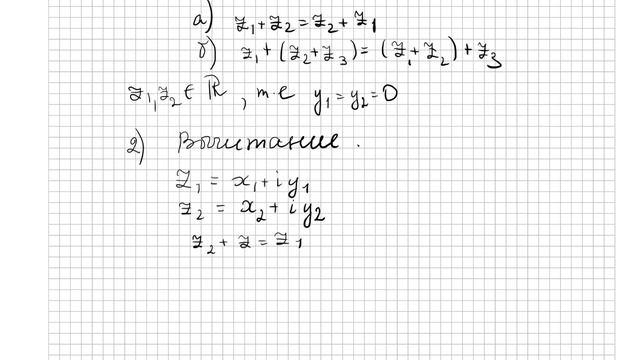 а) z₁ + z₂ = z₂ + z₁
б) z₁ + (z₂ + z₃) = (z₁ + z₂) + z₃
z₁, z₂ ∈ ℝ, т.е y₁ = y₂ = 0
2) Вычитание.
z₁ = x₁ + i y₁
z₂ = x₂ + i y₂
z₂ + z = z₁